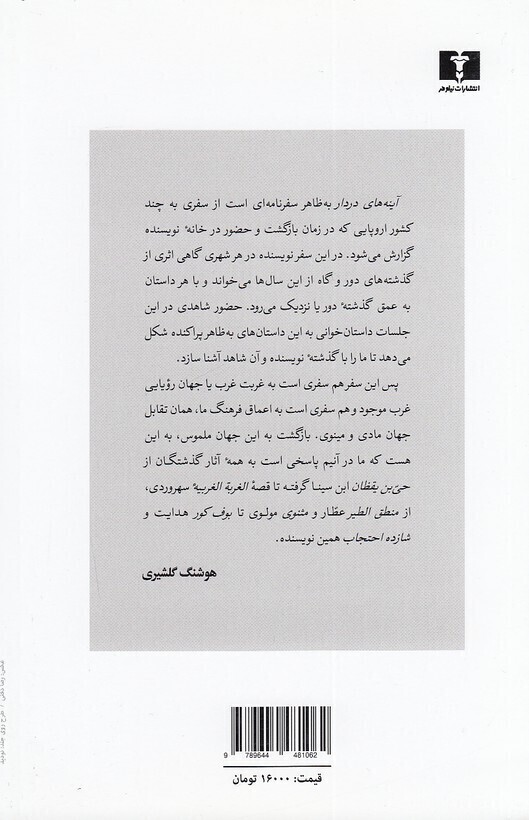 انتشارات نیلوفر
آینه‌های دردار به‌ظاهر سفرنامه‌ای است از سفری به چند
کشور اروپایی که در زمان بازگشت و حضور در خانهٔ نویسنده
گزارش می‌شود. در این سفر نویسنده در هر شهری گاهی اثری از
گذشته‌های دور و گاه از این سال‌ها می‌خواند و با هر داستان
به عمق گذشتهٔ دور یا نزدیک می‌رود. حضور شاهدی در این
جلسات داستان‌خوانی به این داستان‌های به‌ظاهر پراکنده شکل
می‌دهد تا ما را با گذشتهٔ نویسنده و آن شاهد آشنا سازد.
پس این سفر هم سفری است به غربت غرب یا جهان رؤیایی
غرب موجود و هم سفری است به اعماق فرهنگ ما، همان تقابل
جهان مادی و مینوی. بازگشت به این جهان ملموس، به این
هست که ما در آنیم پاسخی است به همهٔ آثار گذشتگان از
حی‌ّبن یقظان ابن سینا گرفته تا قصهٔ الغربة الغربیهٔ سهروردی،
از منطق الطیر عطّار و مثنوی مولوی تا بوف کور هدایت و
شازده احتجاب همین نویسنده.
هوشنگ گلشیری
9 789644 481062
قیمت: ۱۶۰۰۰ تومان